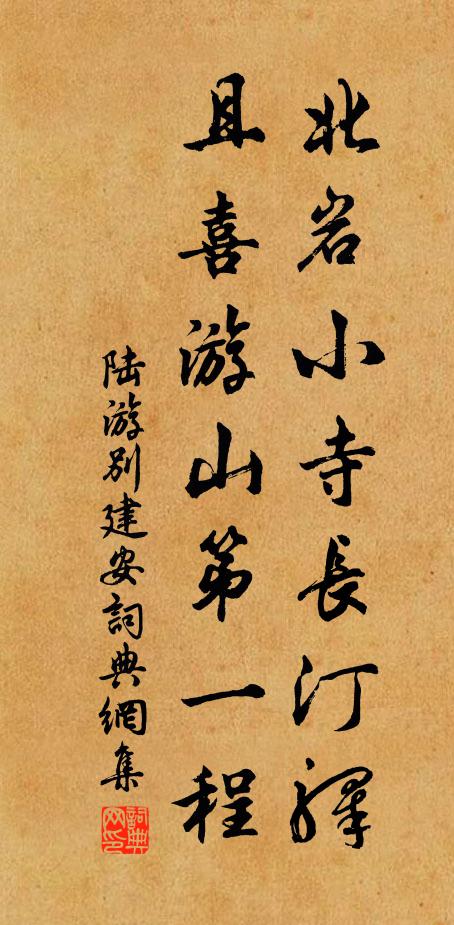 北岩小寺長汀驛
且喜游山第一程
陸游别建安詞典網集
詞典网印